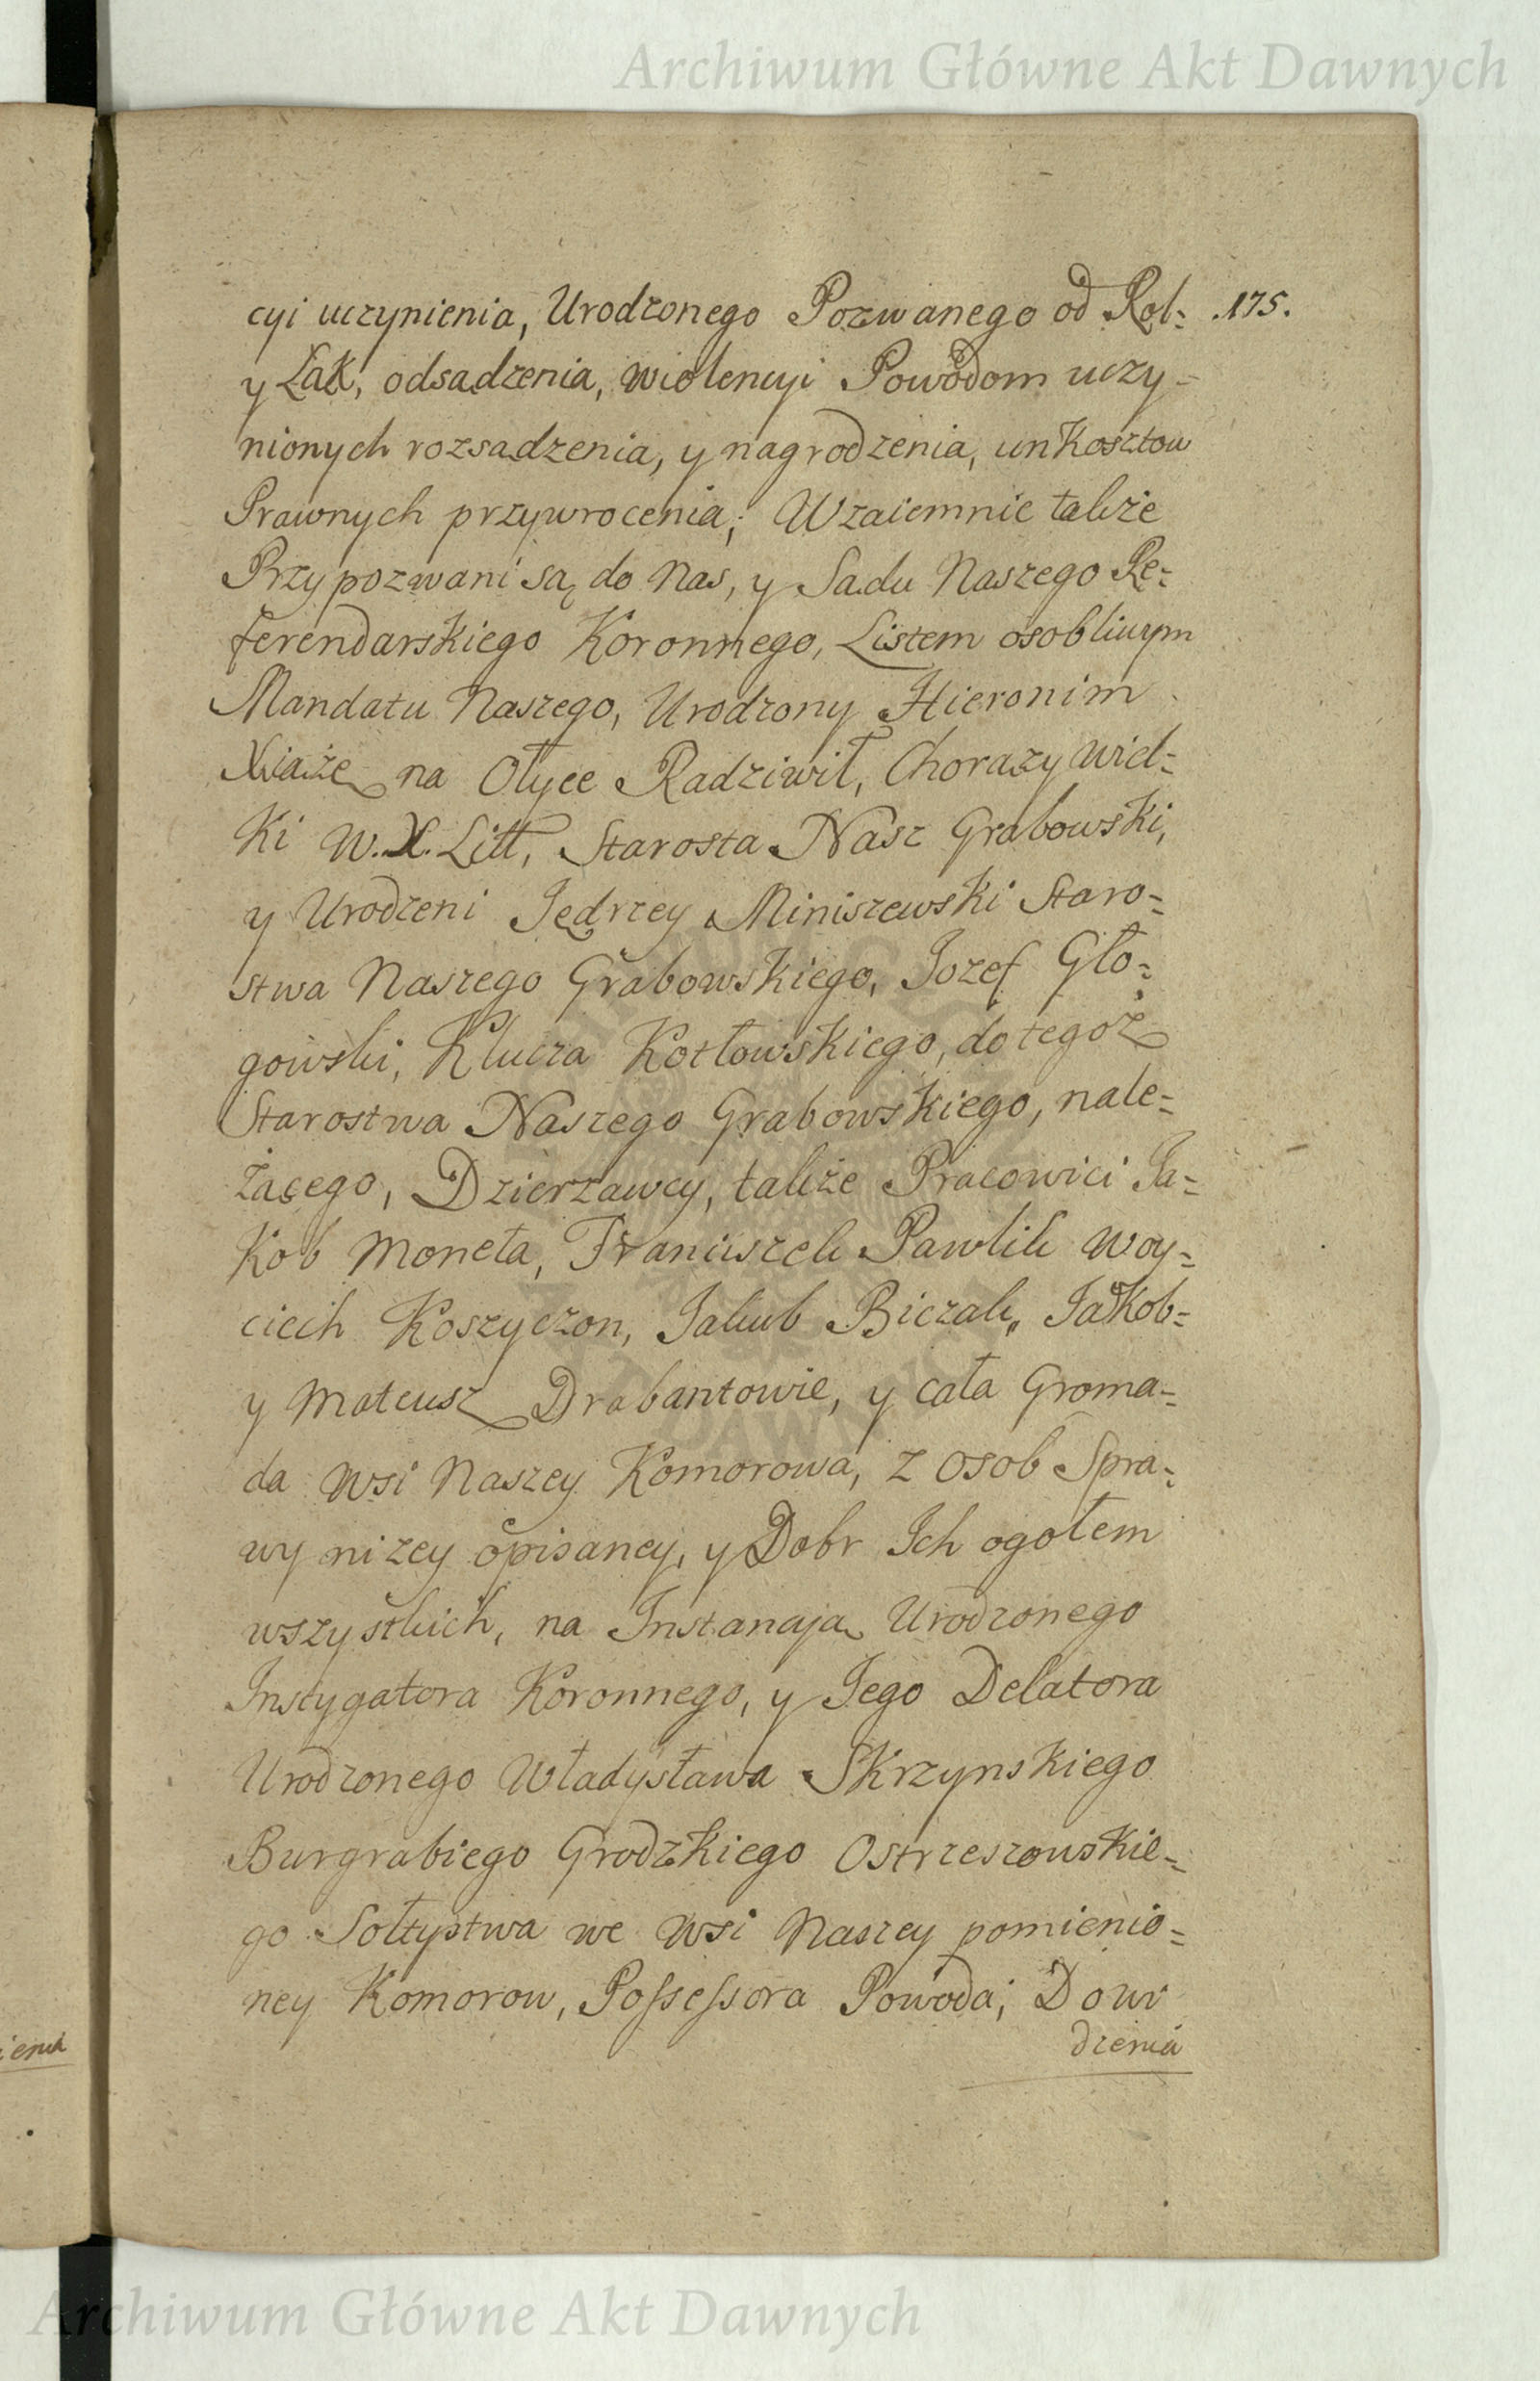 Archiwum Główne Akt Dawnych
cyi uczynienia, Urodzonego Pozwanego od Rol= .175.
y Łąk, odsądzenia, wiolencyi Powodom uczy-
nionych rozsądzenia, y nagrodzenia, unkosztow
Prawnych przywrocenia; Wzaiemnie także
Przypozwani są do Nas, y Sądu Naszego Re=
ferendarskiego Koronnego, Listem osobliwym
Mandatu Naszego, Urodzony Hieronim
Xiąże na Ołyce Radziwił, Chorąży Wiel=
ki W. X. Litt, Starosta Nasz Grabowski,
y Urodzeni Jędrzey Miniszewski Staro=
stwa Naszego Grabowskiego, Jozef Gło=
gowski, Klucza Kotłowskiego, do tegoż
Starostwa Naszego Grabowskiego, nale=
żącego, Dzierzawcy, także Pracowici Ja=
kob Moneta, Franciszek Pawlik Woy=
ciech Koszyczon, Jakub Biczak, Jakob=
y Mateusz Drabantowie, y cała Groma=
da Wsi Naszey Komorowa, z Osob Spra=
wy niżey opisaney, y Dobr Ich ogołem
wszystkich, na Instancją Urodzonego
Instygatora Koronnego, y Jego Delatora
Urodzonego Władysława Skrzynskiego
Burgrabiego Grodzkiego Ostrzeszowskie=
go Sołtystwa we Wsi Naszey pomienio=
ney Komorow, Possessora Powoda; Dowo
dzenia
ienia
Archiwum Główne Akt Dawnych